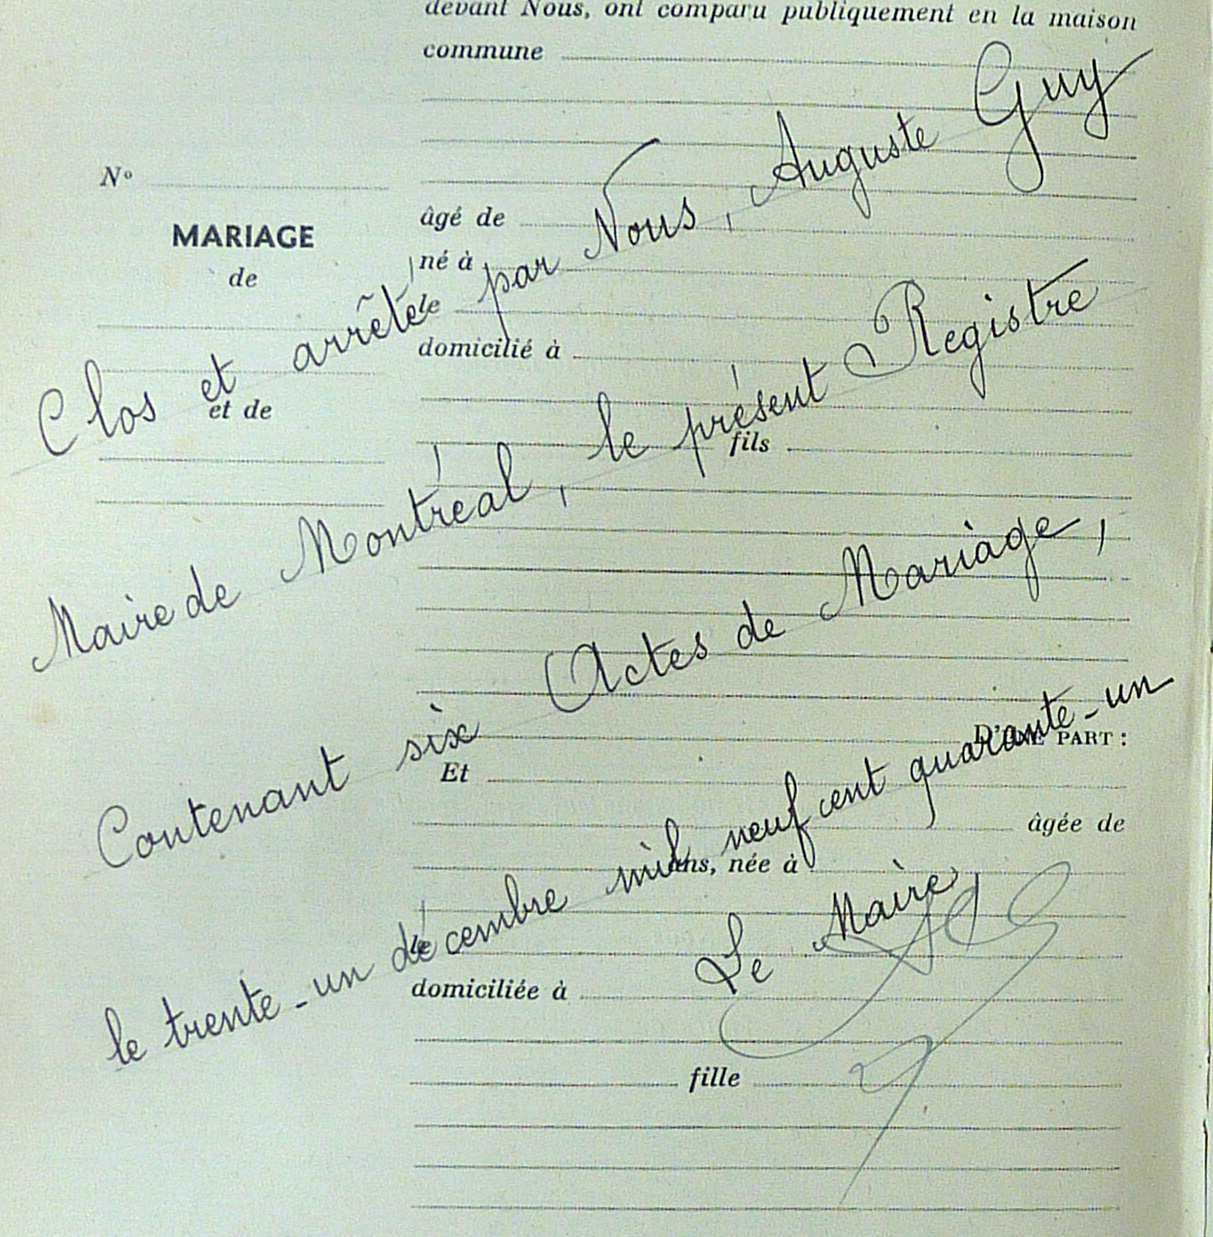 devant Nous, ont comparu publiquement en la maison
commune
Nº
MARIAGE
de
et de
âgé de
né à
le
domicilié à
fils
D'UNE PART :
Et
âgée de
ans, née à
le
domiciliée à
fille
Clos et arrêté par Nous, Auguste Guy
Maire de Montréal, le présent Registre
Contenant six Actes de Mariage,
le trente-un décembre mil neuf cent quarante-un
Le Maire,